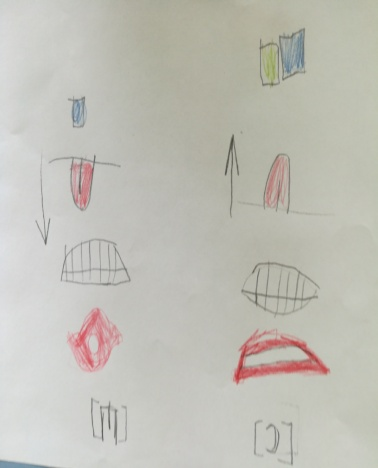 [m] [ɔ]